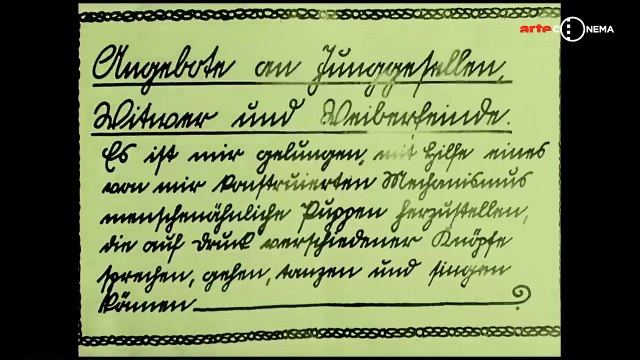 arte CINEMA
Angebote an Junggesellen,
Witwer und Weiberfeinde.
Es ist mir gelungen, mit Hilfe eines
von mir konstruierten Mechanismus
menschenähnliche Puppen herzustellen,
die auf Druck verschiedener Knöpfe
sprechen, gehen, tanzen und singen
können